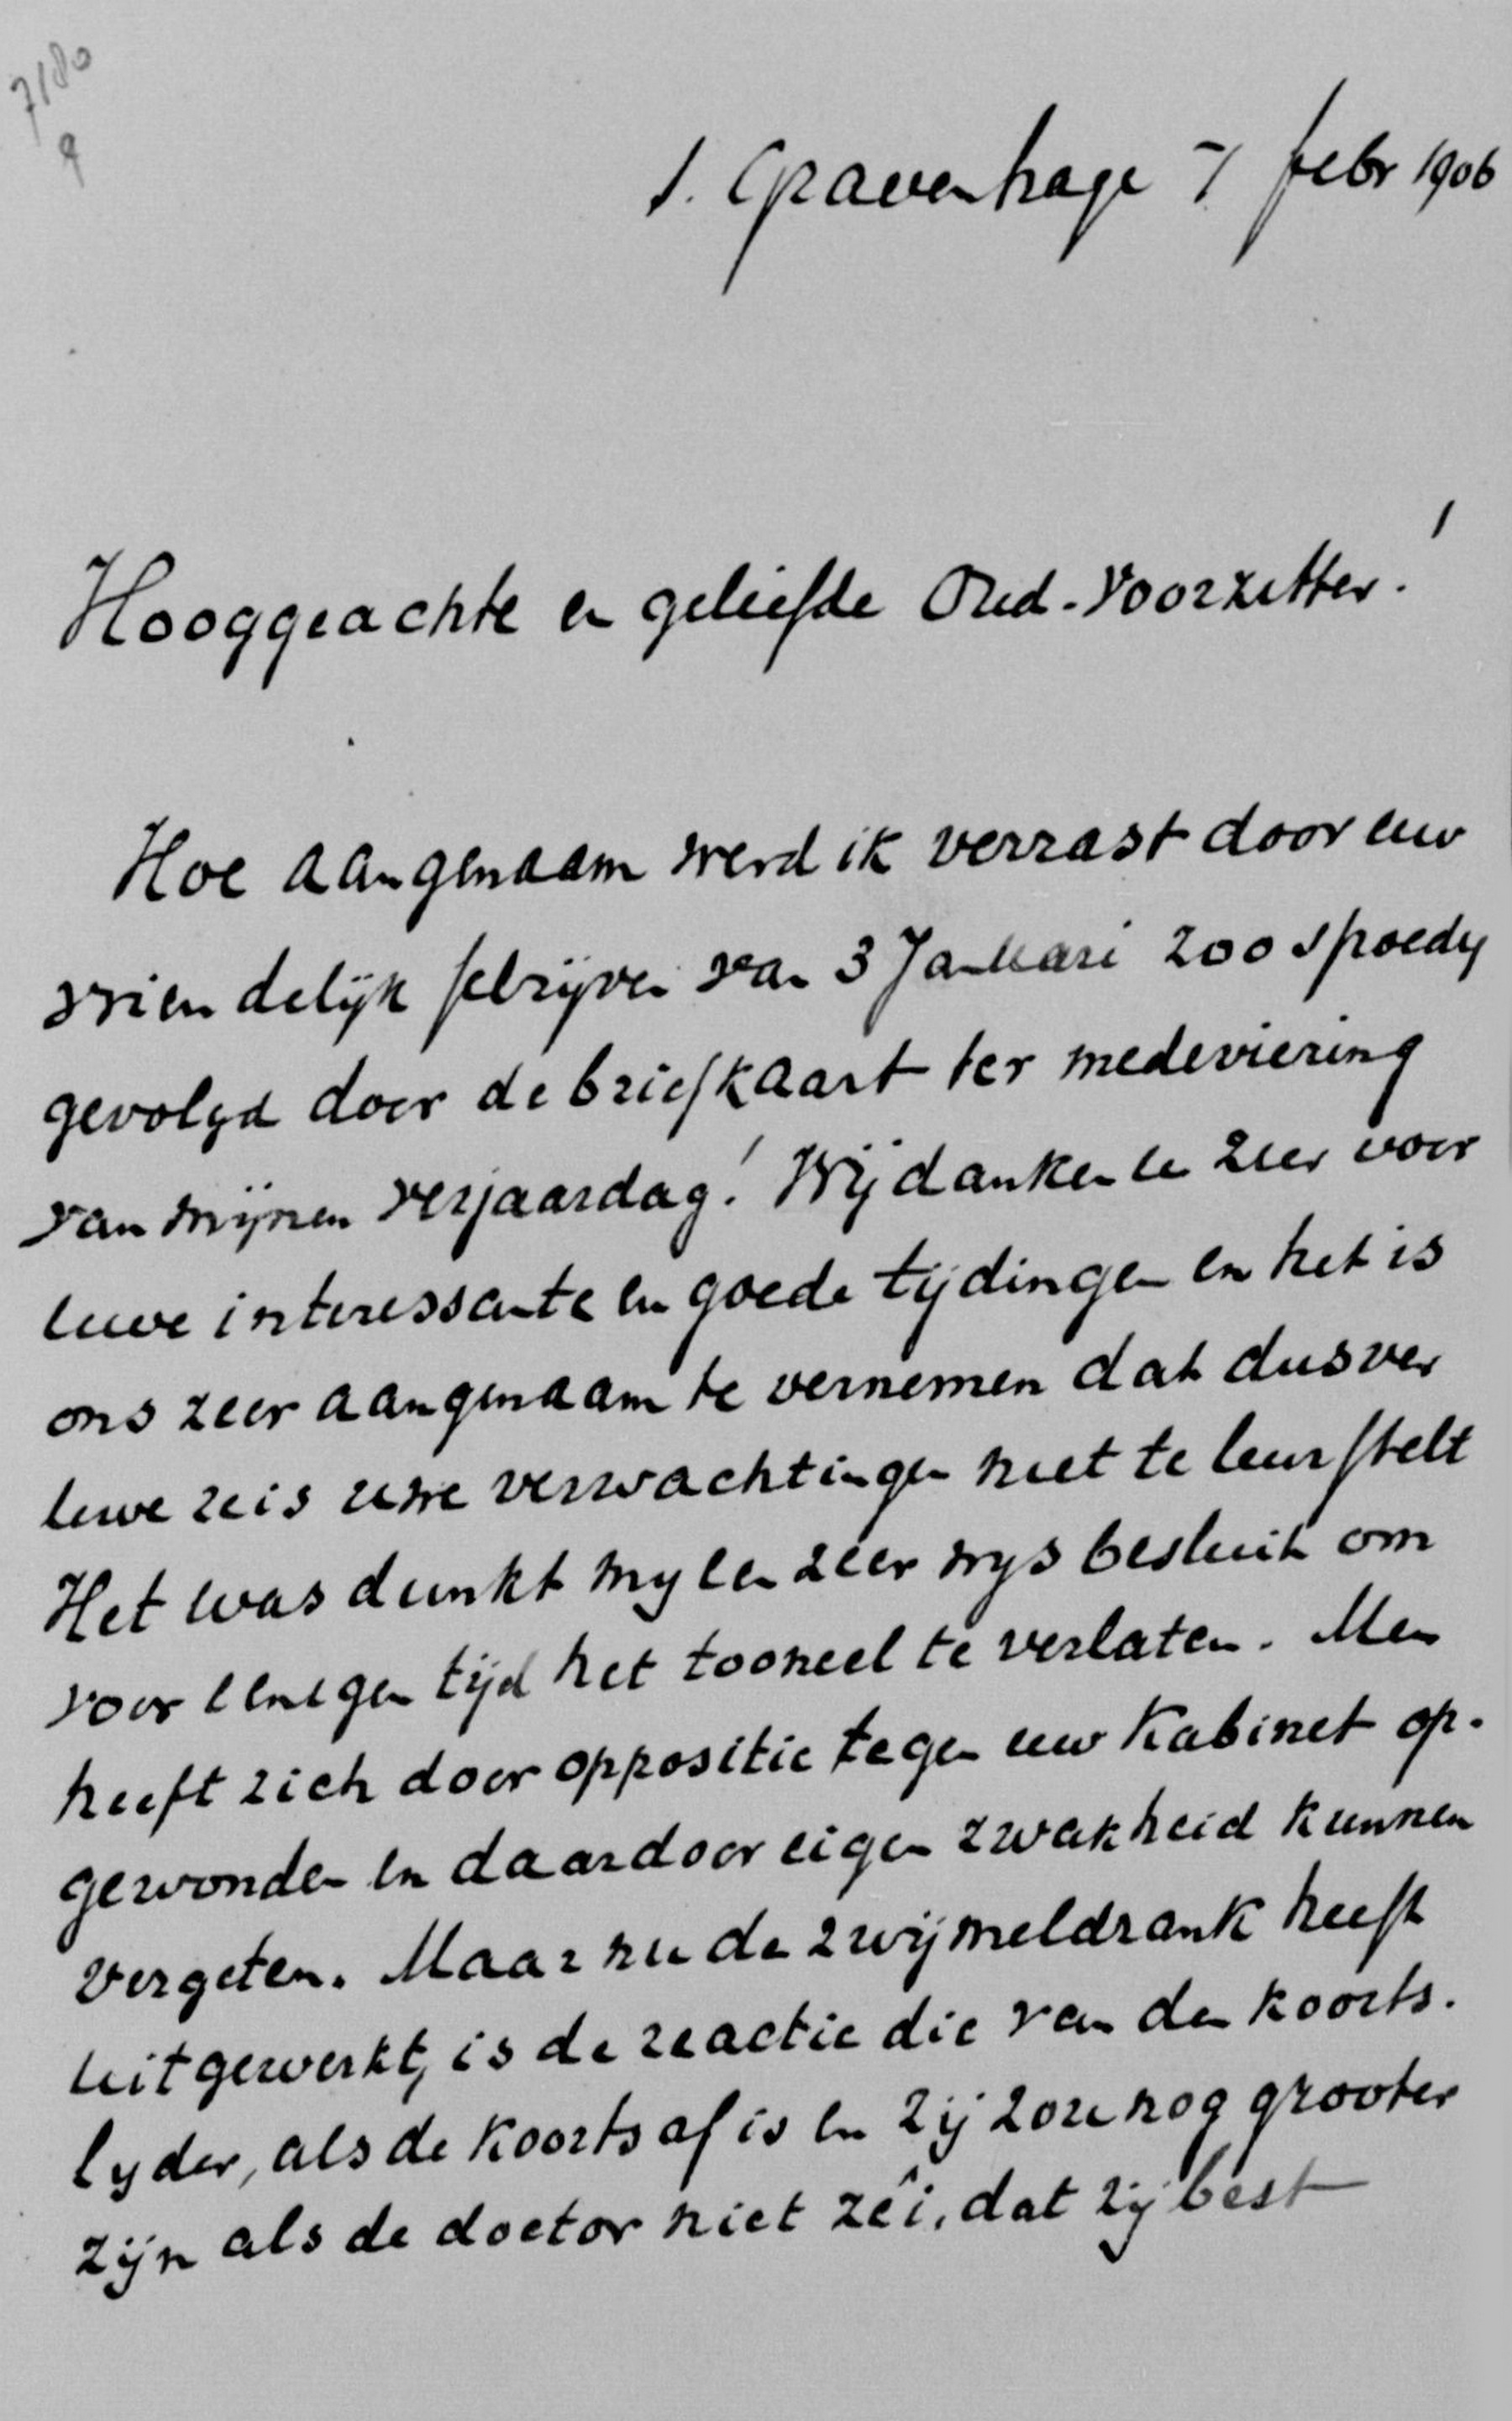 7180
9
s. Gravenhage 7 febr 1906
Hooggeachte en geliefde Oud-Voorzitter!
Hoe aangenaam werd ik verrast door uw
vriendelijk schrijven van 3 Januari zoo spoedig
gevolgd door de briefkaart ter medeviering
van mijnen verjaardag! Wij danken U zeer voor
uwe interessante en goede tijdingen en het is
ons zeer aangenaam te vernemen dat dusver
uwe reis uwe verwachtingen niet te leurstelt
Het was dunkt my een zeer wys besluit om
voor eenigen tijd het tooneel te verlaten. Men
heeft zich door oppositie tegen uw Kabinet op-
gewonden en daardoor eigen zwakheid kunnen
vergeten. Maar nu de zwijmeldrank heeft
uitgewerkt, is de reactie die van den koorts-
lyder, als de koorts af is en zij zou nog grooter
zijn als de doctor niet zei, dat zij best